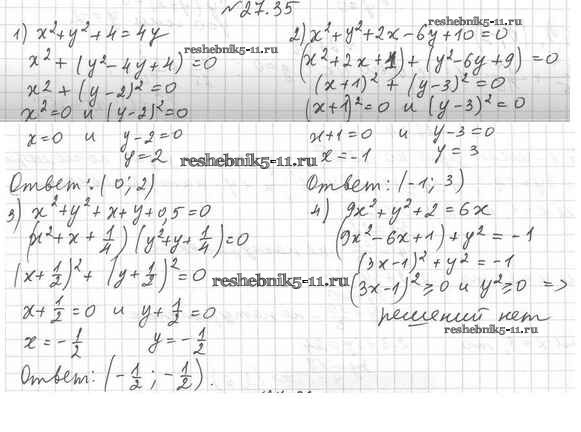 №27.35
1) x²+y²+4=4y
x²+(y²-4y+4)=0
x²+(y-2)²=0
x²=0 и (y-2)²=0
x=0 и y-2=0
y=2
Ответ: (0; 2)
2) x²+y²+2x-6y+10=0
(x²+2x+1)+(y²-6y+9)=0
(x+1)²+(y-3)²=0
(x+1)²=0 и (y-3)²=0
x+1=0 и y-3=0
x=-1 y=3
Ответ: (-1; 3)
3) x²+y²+x+y+0,5=0
(x²+x+1/4)(y²+y+1/4)=0
(x+1/2)²+(y+1/2)²=0
x+1/2=0 и y+1/2=0
x=-1/2 y=-1/2
Ответ: (-1/2; -1/2).
4) 9x²+y²+2=6x
(9x²-6x+1)+y²=-1
(3x-1)²+y²=-1
(3x-1)²≥0 и y²≥0 =>
решений нет
reshebnik5-11.ru
reshebnik5-11.ru
reshebnik5-11.ru
reshebnik5-11.ru
reshebnik5-11.ru